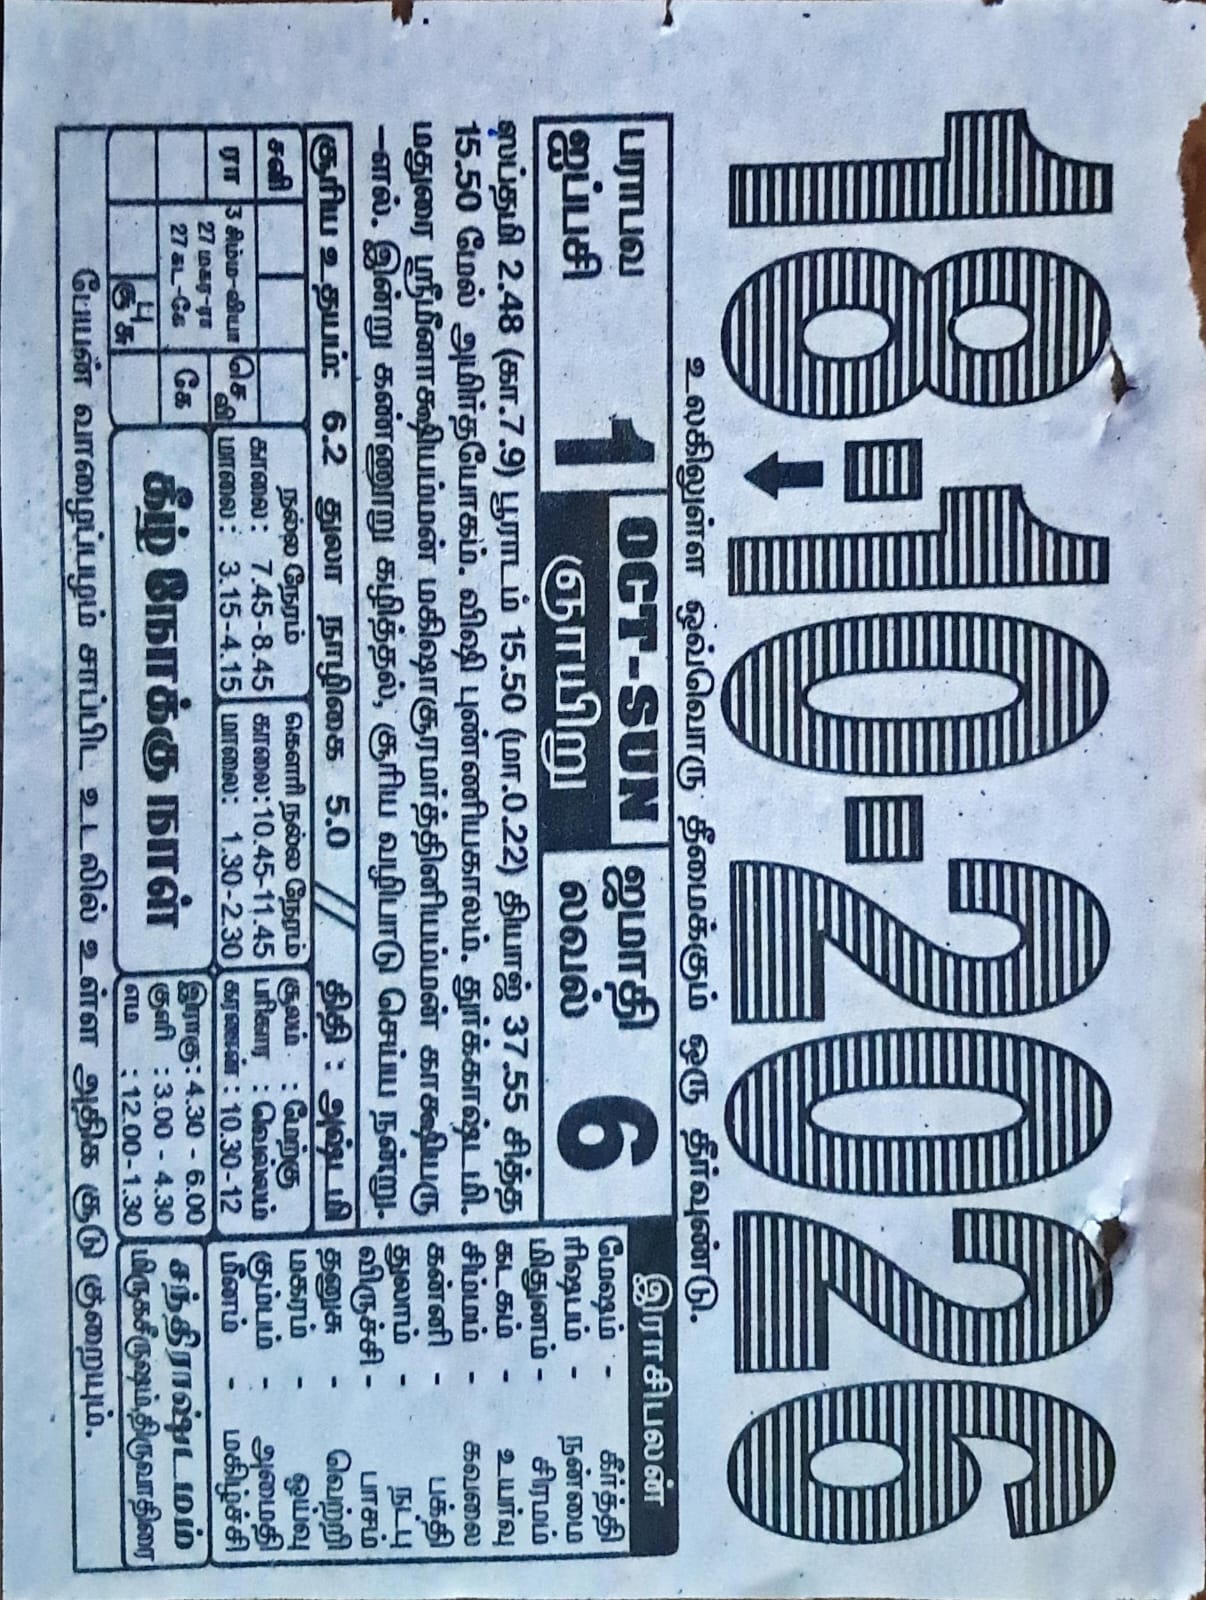 18-10-2026
உலகிலுள்ள ஒவ்வொரு தீமைக்கும் ஒரு தீர்வுண்டு.
பராபவ
ஐப்பசி
1
OCT-SUN
ஞாயிறு
ஜமாதி
லவல்
6
ஸப்தமி 2.48 (கா.7.9) பூராடம் 15.50 (மா.0.22) தியாஜ் 37.55 சித்த
15.50 மேல் அமிர்தயோகம். விஷு புண்ணியகாலம். துர்க்காஷ்டமி.
மதுரை ஸ்ரீமீனாக்ஷியம்மன் மகிஷாசூரமர்த்தினியம்மன் காக்ஷியரு
-ளல். இன்று கண்ணூறு கழித்தல், சூரிய வழிபாடு செய்ய நன்று.
சூரிய உதயம்: 6.2 துலா நாழிகை 5.0 // திதி : அஷ்டமி
சனி
ரா
3 சிம்ம-வியா
27 மகர-ரா
27 கட-கே
செ
வி
கே
பு
சூ சு
நல்ல நேரம்
காலை : 7.45-8.45
மாலை : 3.15-4.15
கௌரி நல்ல நேரம்
காலை:10.45-11.45
மாலை: 1.30-2.30
சூலம் : மேற்கு
பரிகார : வெல்லம்
கரணன் : 10.30-12
கீழ் நோக்கு நாள்
இராகு: 4.30 - 6.00
குளி : 3.00 - 4.30
எம : 12.00-1.30
இராசிபலன்
மேஷம் - கீர்த்தி
ரிஷபம் - நன்மை
மிதுனம் - சிரமம்
கடகம் - உயர்வு
சிம்மம் - கவலை
கன்னி - பக்தி
துலாம் - நட்பு
விருச்சி - பாசம்
தனுசு - வெற்றி
மகரம் - ஓய்வு
கும்பம் - அமைதி
மீனம் - மகிழ்ச்சி
சந்திராஷ்டமம்
மிருகசீருஷம்,திருவாதிரை
பேயன் வாழைப்பழம் சாப்பிட உடலில் உள்ள அதிக சூடு குறையும்.